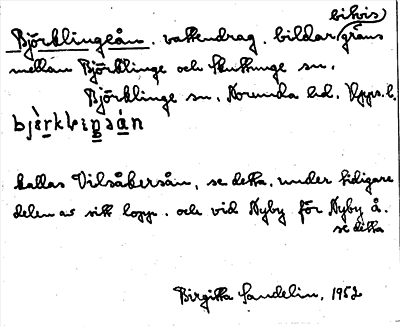 bitvis
Björklingeån. vattendrag. bildar gräns
mellan Björklinge och Skuttunge sn.
Björklinge sn. Norunda hd. Upps. l.
bjèrklińəán
kallas Vilsåkersån, se detta, under tidigare
delen av sitt lopp. och vid Nyby för Nyby å.
se detta
Birgitta Sandelin, 1952